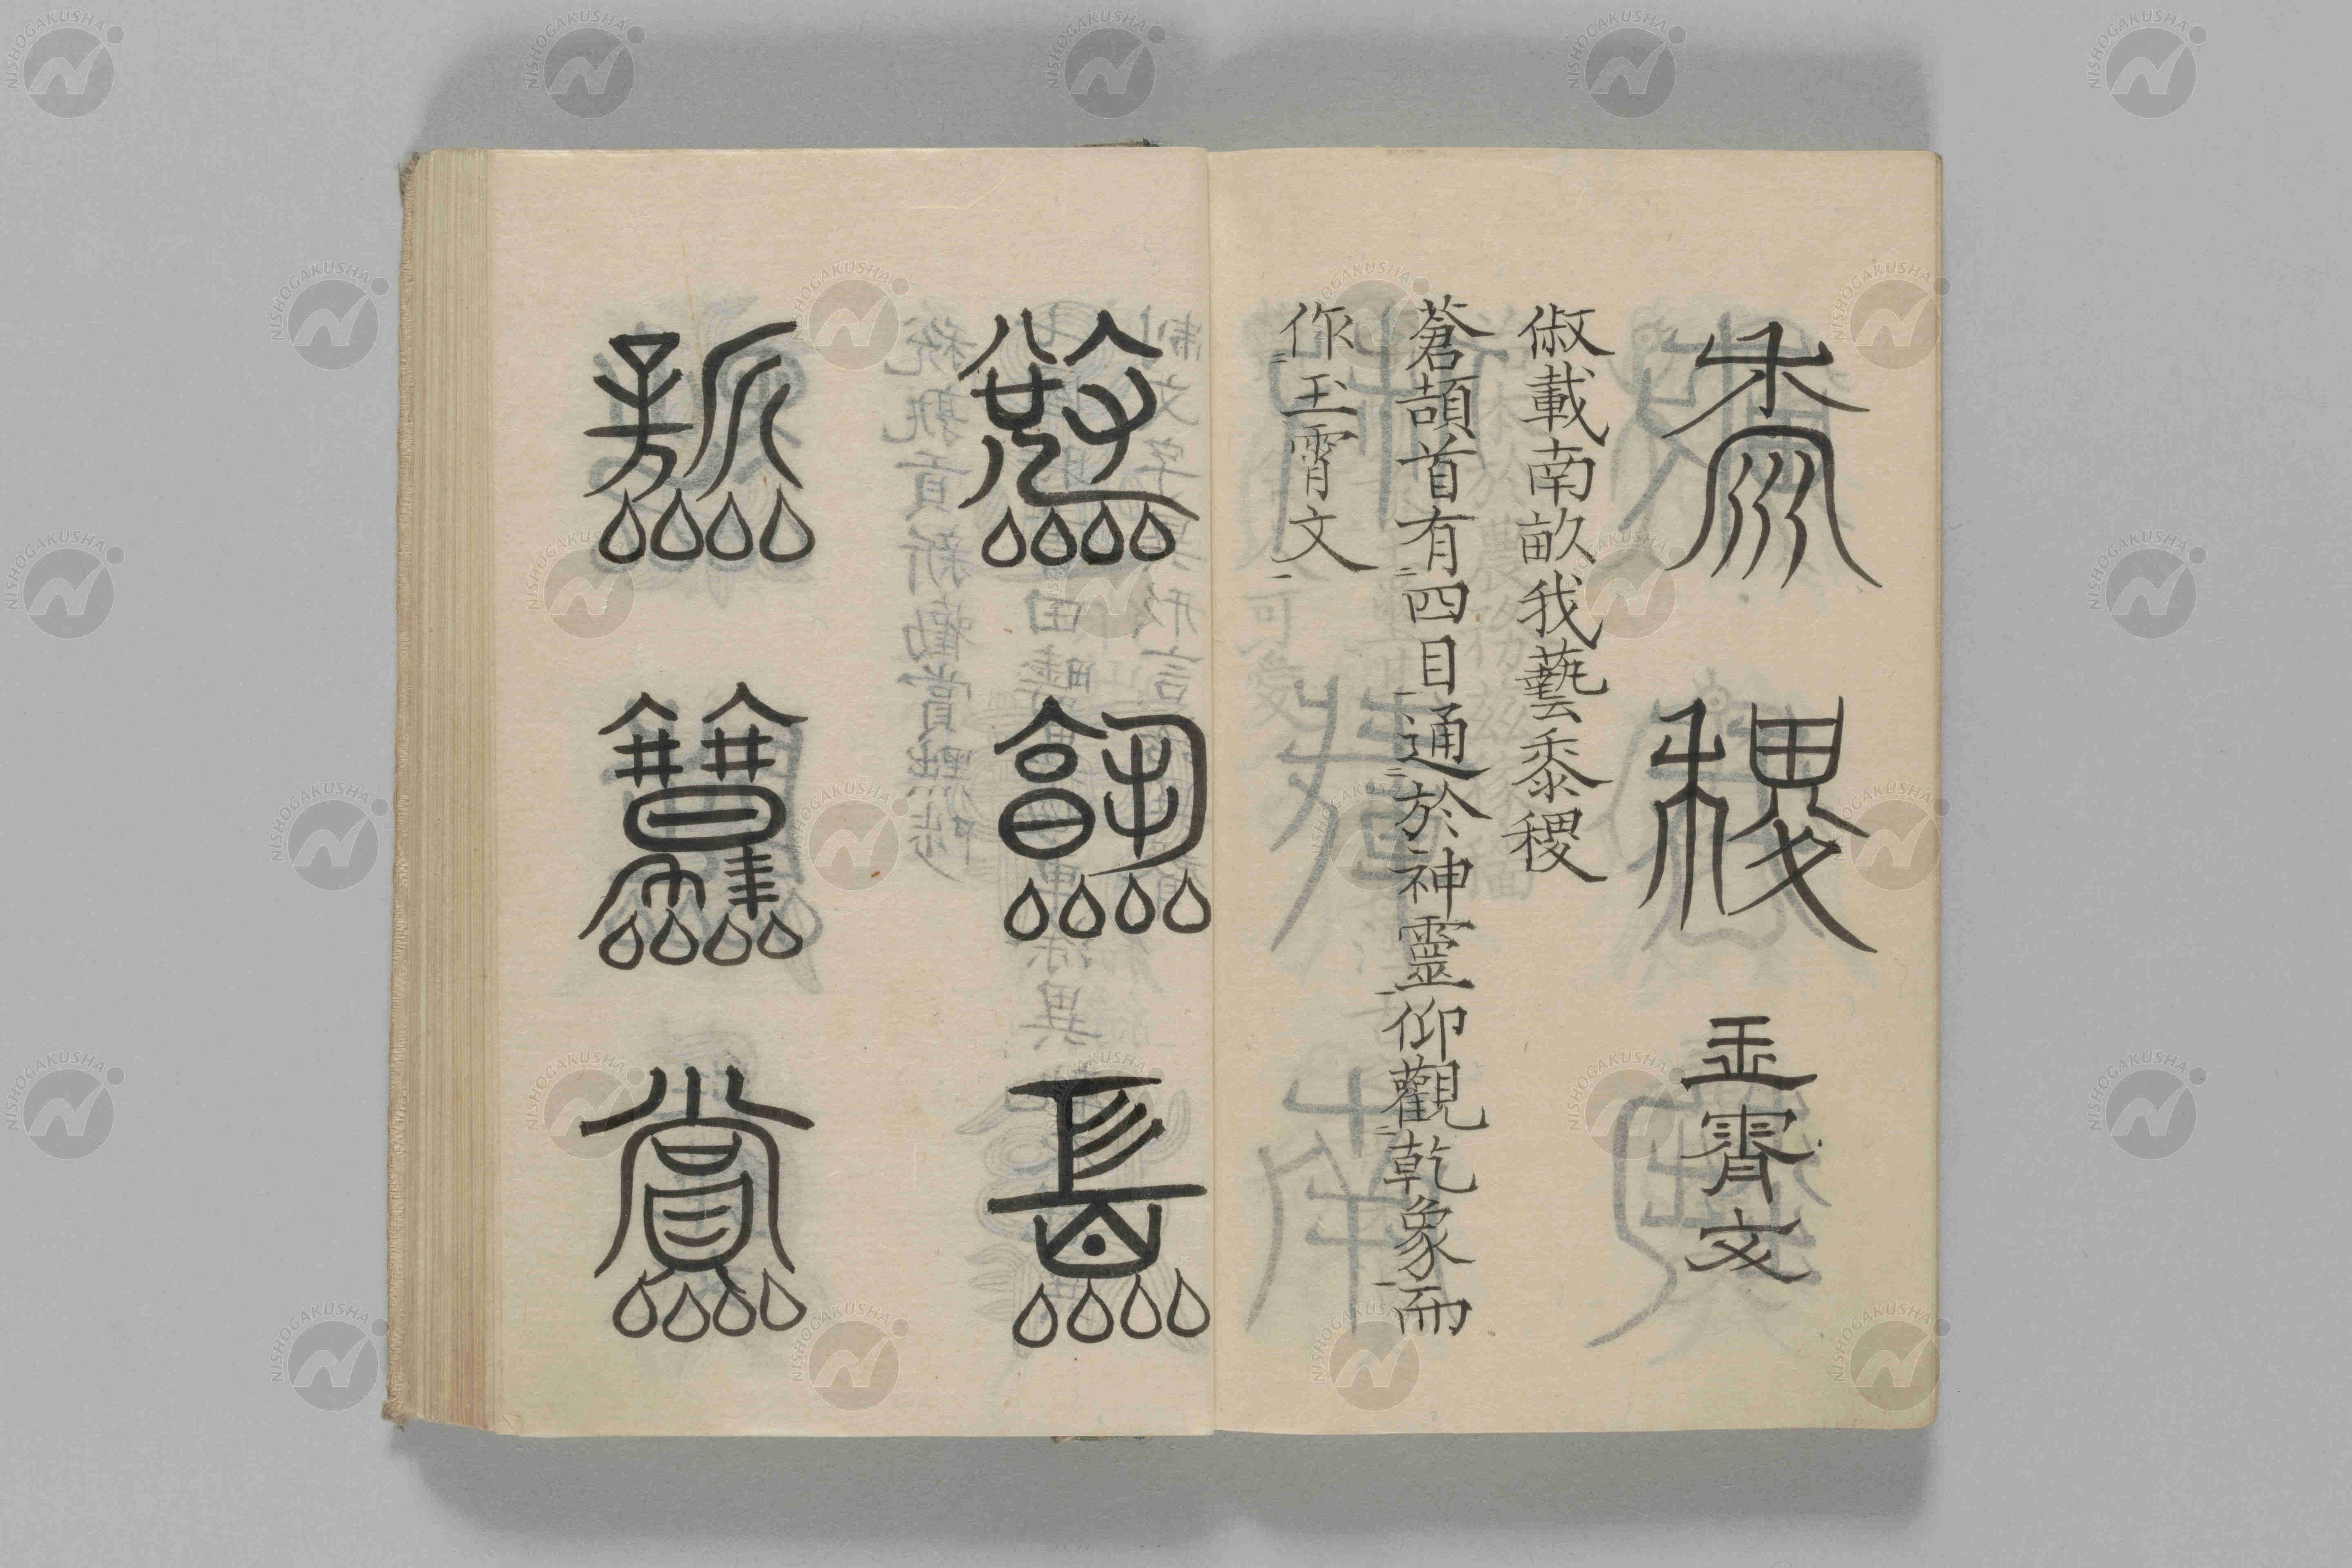 黍稷
玉霄文
俶載南畝我藝黍稷
蒼頡首有四目通於神靈仰觀乾象而
作玉霄文
稅熟貢
新勸賞
NISHOGAKUSHA